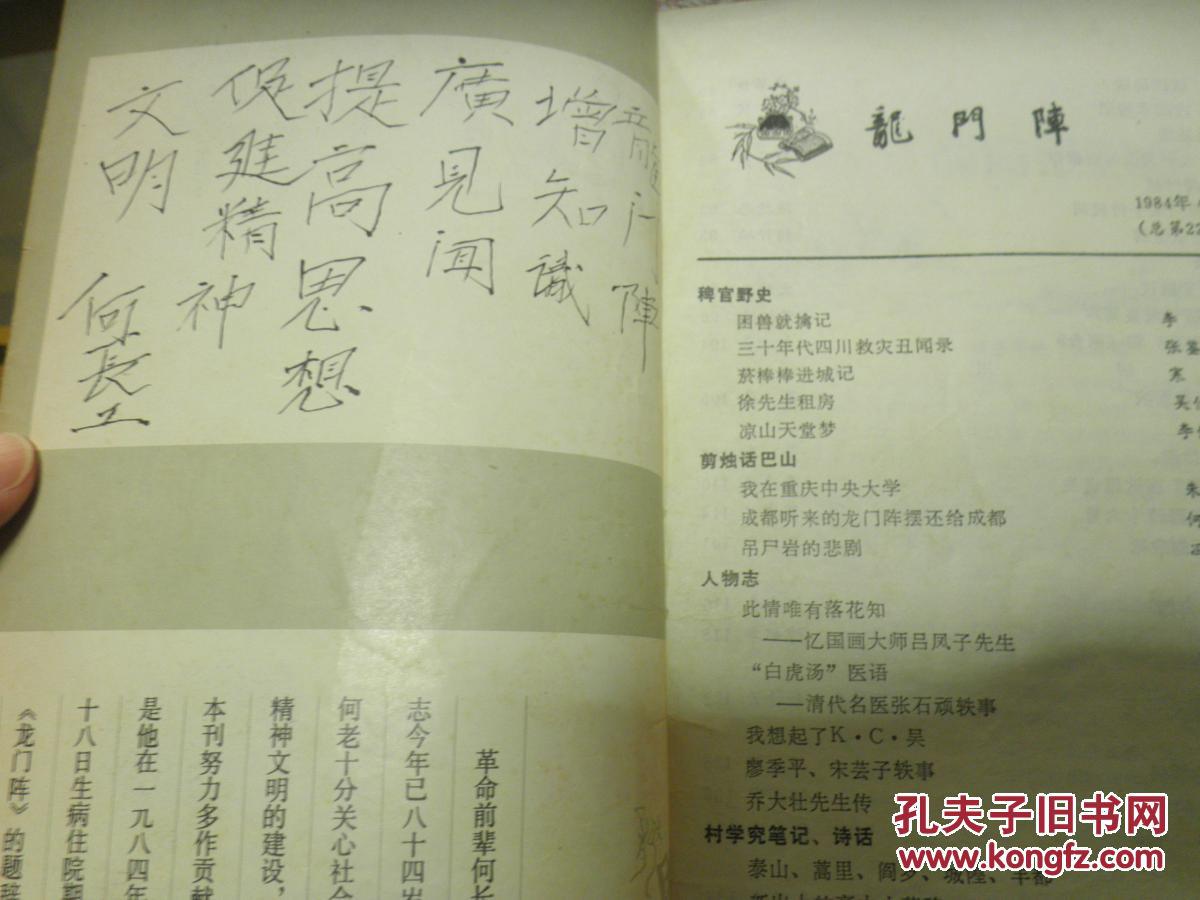 龍门陣
增知識
廣見闻
提高思想
促進精神
文明
何長工
革命前辈何长
志今年已八十四岁
何老十分关心社会
精神文明的建设，
本刊努力多作贡献
是他在一九八四年
十八日生病住院期
《龙门阵》的题辞
龍門陣
1984年
(总第22
稗官野史
困兽就擒记
李
三十年代四川救灾丑闻录
张
菸棒棒进城记
寒
徐先生租房
吴
凉山天堂梦
李
剪烛话巴山
我在重庆中央大学
朱
成都听来的龙门阵摆还给成都
何
吊尸岩的悲剧
人物志
此情唯有落花知
——忆国画大师吕凤子先生
“白虎汤”医语
——清代名医张石顽轶事
我想起了K·C·吴
廖季平、宋芸子轶事
乔大壮先生传
村学究笔记、诗话
泰山、蒿里、阎罗、城隍、丰都
孔夫子旧书网
www.kongfz.com